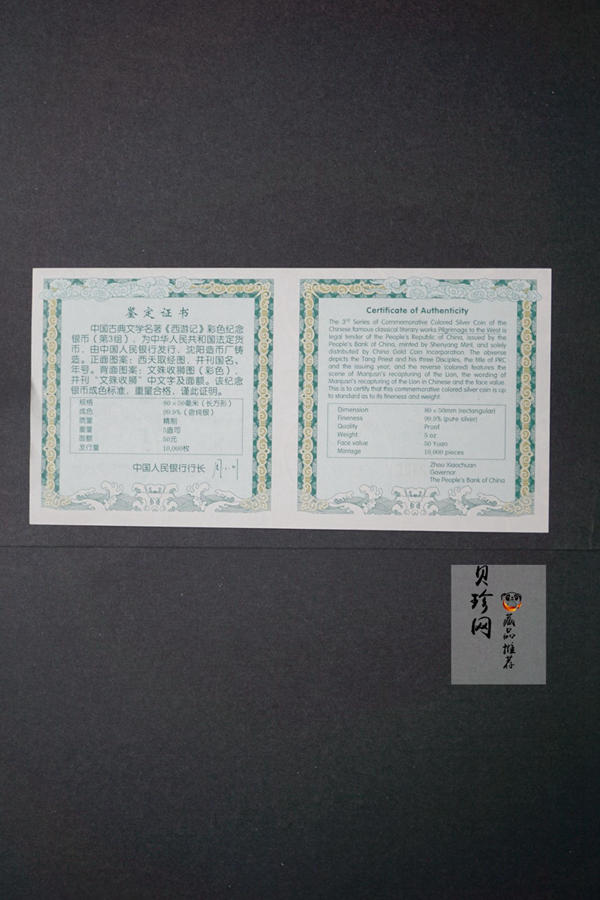 鉴定证书
中国古典文学名著《西游记》彩色纪念
银币（第3组），为中华人民共和国法定货
币，由中国人民银行发行，沈阳造币厂铸
造。正面图案：西天取经图，并刊国名、
年号。背面图案：文殊收狮图（彩色），
并刊“文殊收狮”中文字及面额。该纪念
银币成色标准，重量合格，谨此证明。
规格 80×50毫米（长方形）
成色 99.9%（含纯银）
质量 精制
重量 5盎司
面额 50元
发行量 10,000枚
中国人民银行行长
Certificate of Authenticity
The 3rd Series of Commemorative Colored Silver Coin of the
Chinese famous classical literary works Pilgrimage to the West is
legal tender of the People's Republic of China, issued by the
People's Bank of China, minted by Shenyang Mint, and solely
distributed by China Gold Coin Incorporation. The obverse
depicts the Tang Priest and his three Disciples, the title of PRC
and the issuing year, and the reverse (colored) features the
scene of Manjusri's recapturing of the Lion, the wording of
Manjusri's recapturing of the Lion in Chinese and the face value.
This is to certify that this commemorative colored silver coin is up
to standard as to its fineness and weight.
Dimension 80×50mm (rectangular)
Fineness 99.9% (pure silver)
Quality Proof
Weight 5 oz
Face value 50 Yuan
Mintage 10,000 pieces
Zhou Xiaochuan
Governor
The People's Bank of China
贝珍网
藏品推荐